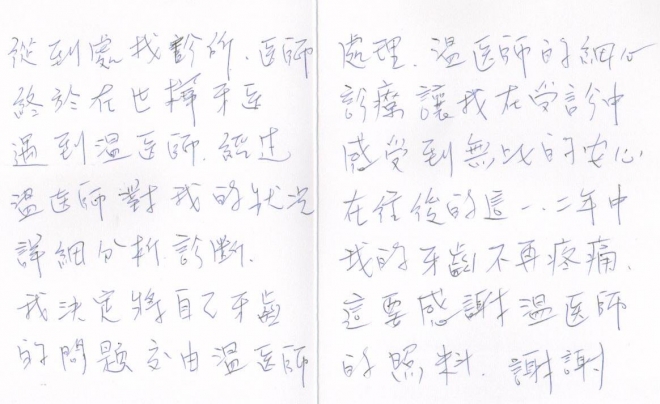 從到處找診所、医師
終於在世樺牙医
遇到温医師.經过
温医師對我的狀況
詳細分析.診斷.
我決定將自己牙齒
的問題交由温医師
處理.温医師的細心
診療讓我在受診中
感受到無比的安心
在往後的這一、二年中
我的牙齒不再疼痛、
這要感謝温医師
的照料.謝謝